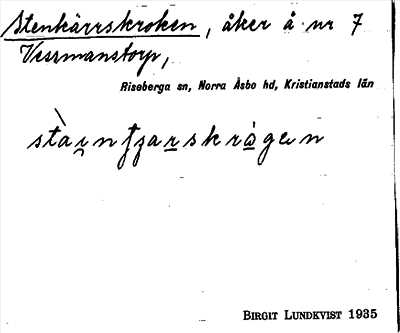 Stenkärrskroken, åker å nr 7
Vessmanstorp,
Riseberga sn, Norra Åsbo hd, Kristianstads län
BIRGIT LUNDKVIST 1935